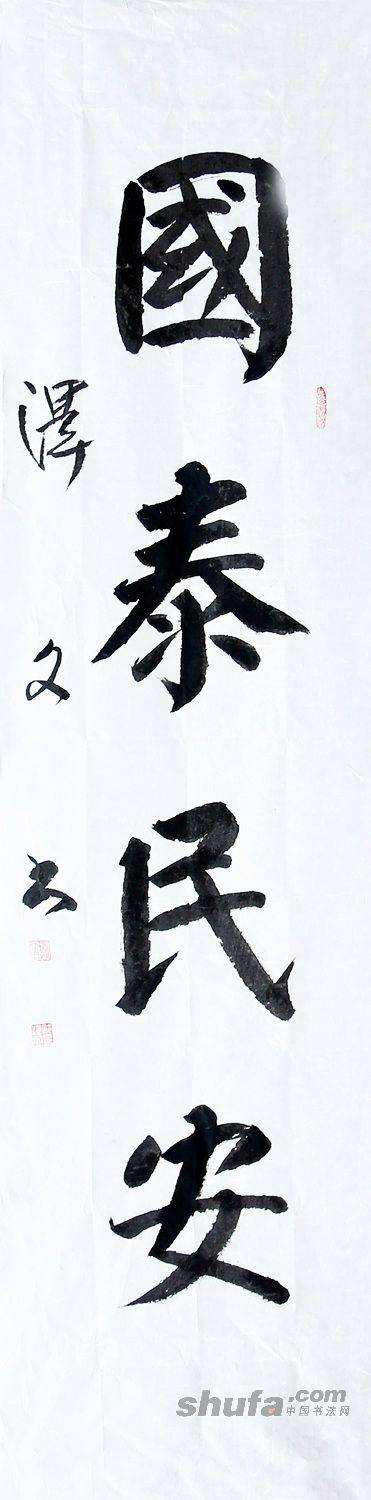 國泰民安
澤文书
shufa.com
中国书法网